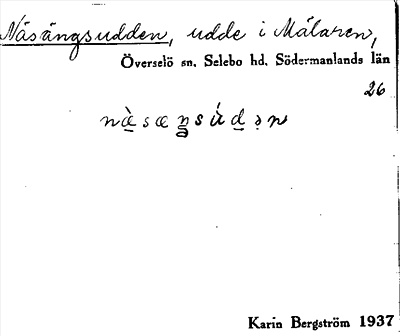 Näsängsudden, udde i Mälaren,
Överselö sn. Selebo hd. Södermanlands län
26
Karin Bergström 1937